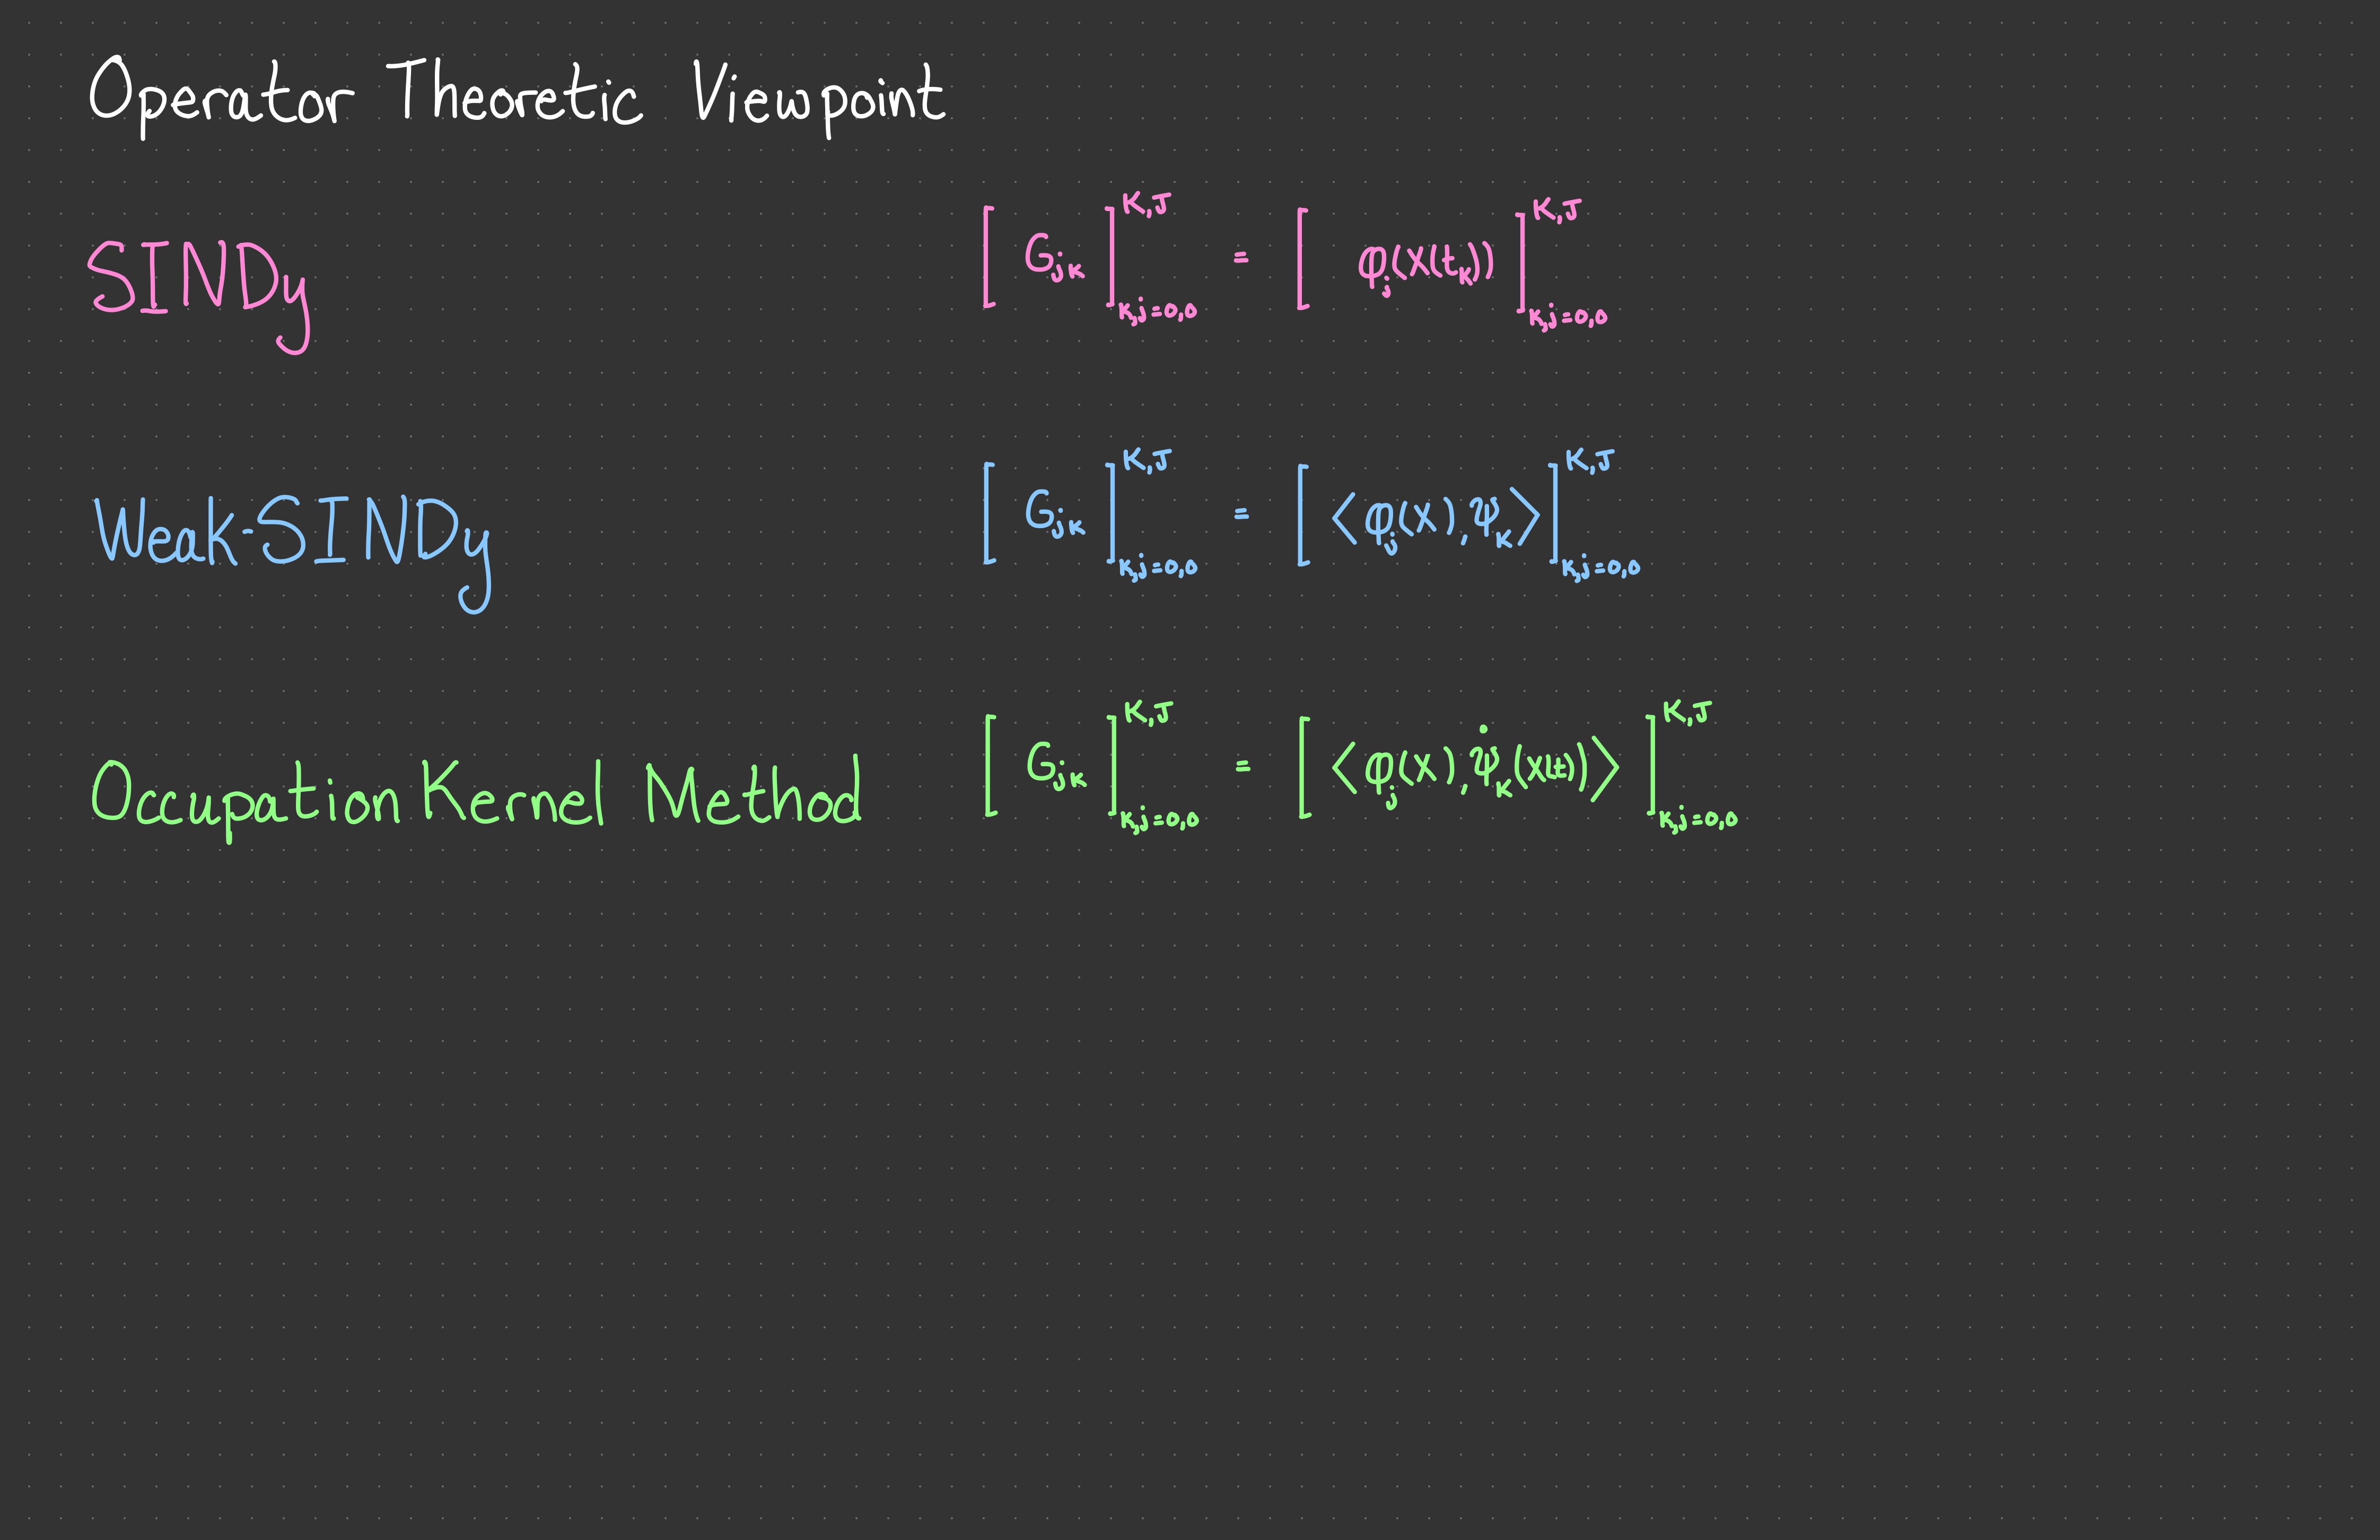 Operator Theoretic Viewpoint
SINDy [ G_jk ]_{k,j=0,0}^{K,J} = [ φ_j(x(t_k)) ]_{k,j=0,0}^{K,J}
Weak-SINDy [ G_jk ]_{k,j=0,0}^{K,J} = [ <φ_j(x), ψ_k> ]_{k,j=0,0}^{K,J}
Occupation Kernel Method [ G_jk ]_{k,j=0,0}^{K,J} = [ <φ_j(x), ψ̇_k(x(t))> ]_{k,j=0,0}^{K,J}